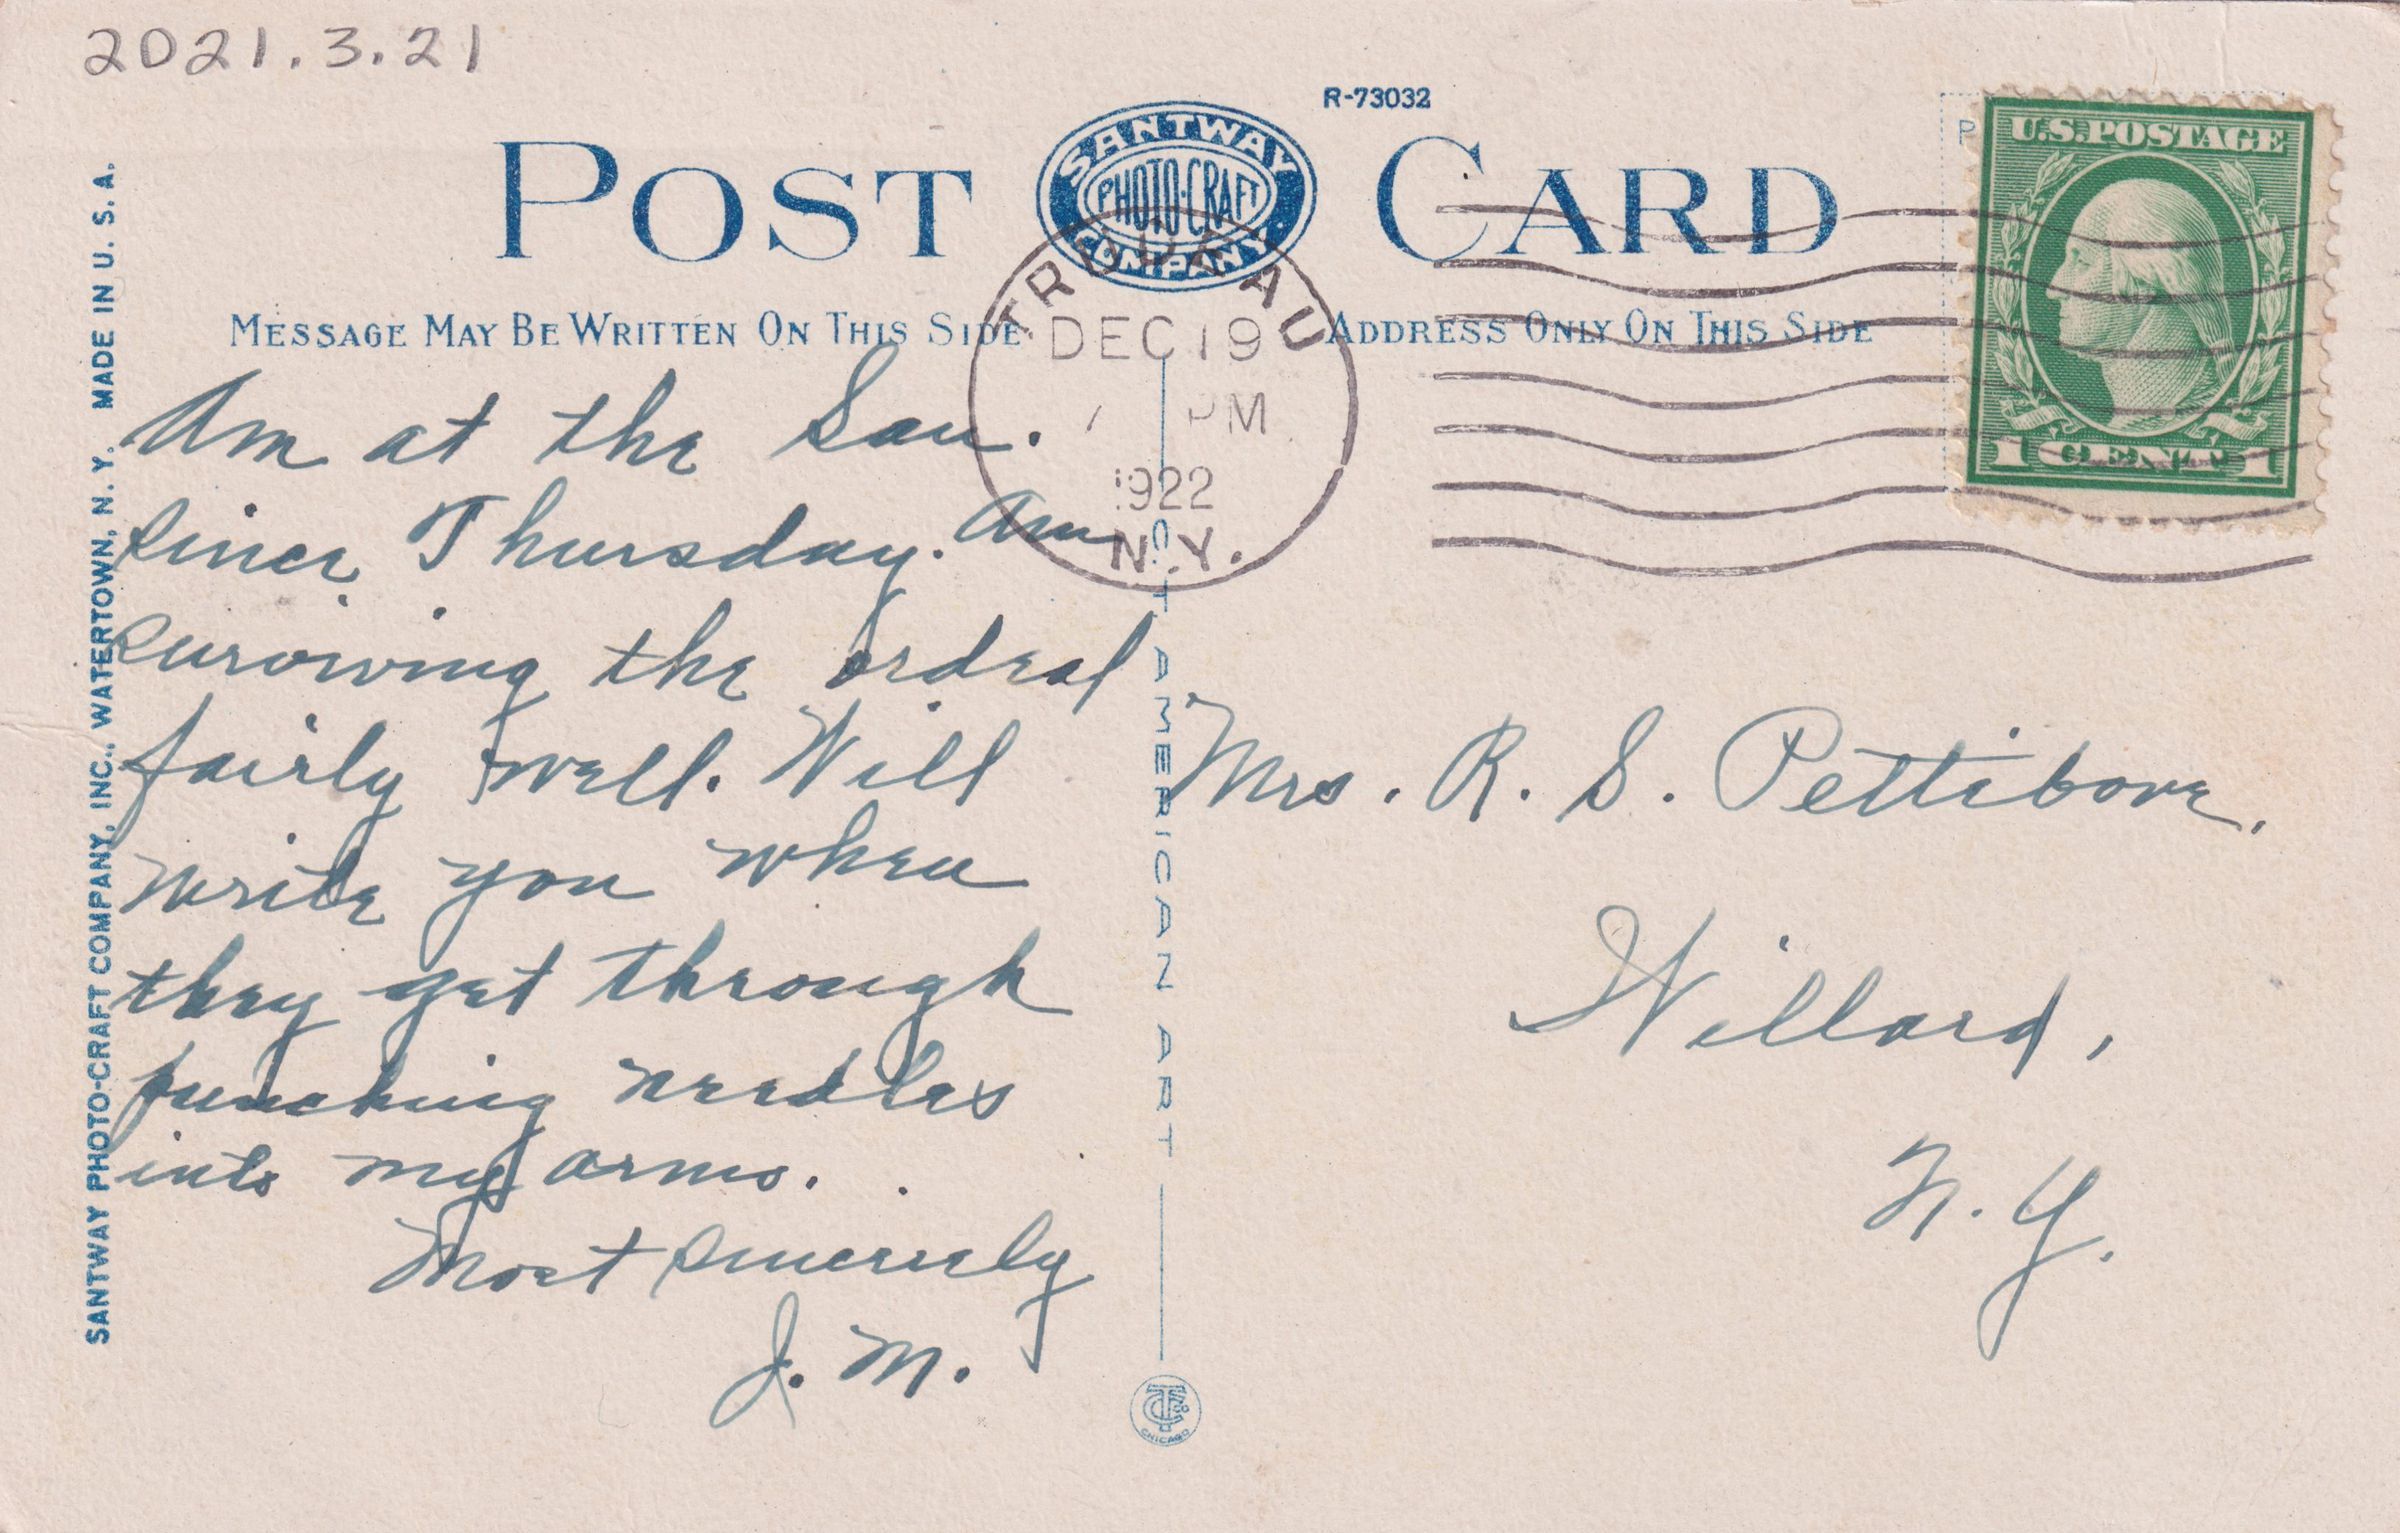 2021.3.21
R-73032
POST CARD
SANTWAY
PHOTO-CRAFT
COMPANY
U.S. POSTAGE
1 CENT 1
MESSAGE MAY BE WRITTEN ON THIS SIDE
ADDRESS ONLY ON THIS SIDE
TRUDEAU
DEC 19
PM
1922
N.Y.
SANTWAY PHOTO-CRAFT COMPANY, INC., WATERTOWN, N. Y. MADE IN U. S. A.
Am at the San.
since Thursday. Am
surviving the ordeal
fairly well. Will
write you when
they get through
punching needles
into my arms.
Most sincerely
J. M.
C. T. AMERICAN ART
Mrs. R. S. Pettibone,
Willard,
N. Y.
CHICAGO